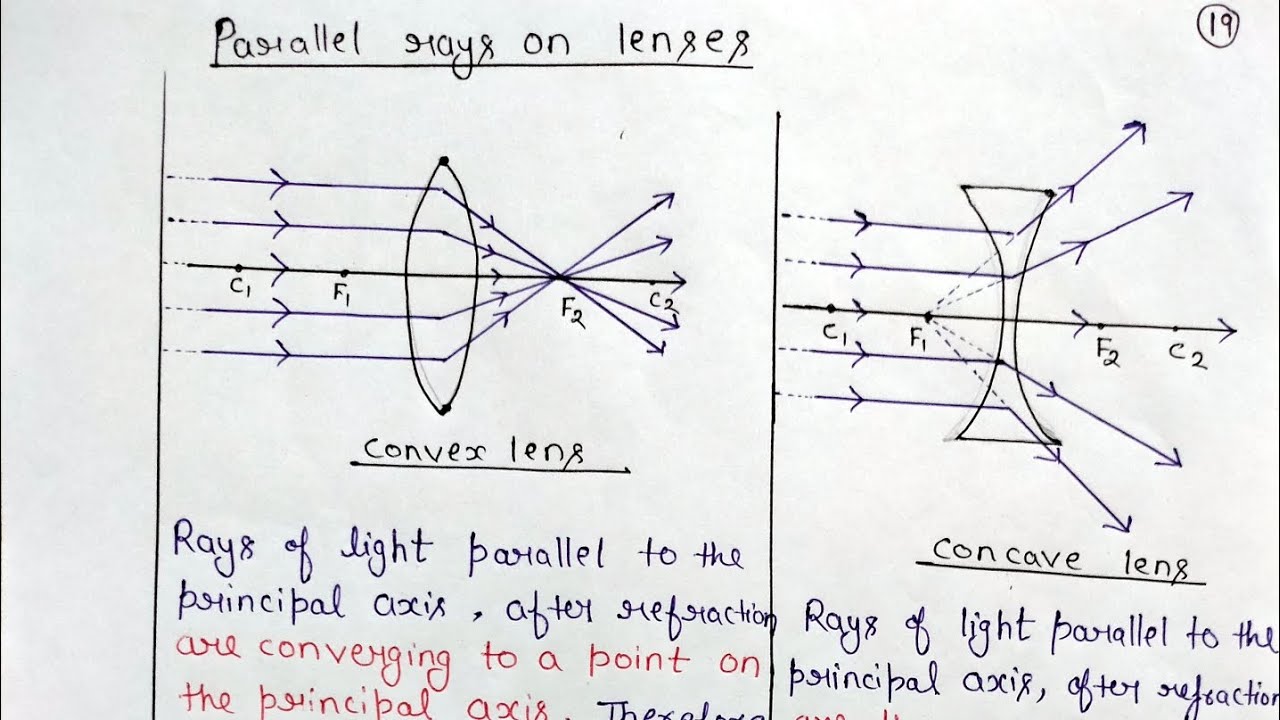 Parallel rays on lenses
19
C1 F1 F2 C2
convex lens
Rays of light parallel to the
principal axis, after refraction
are converging to a point on
the principal axis. Therefore
C1 F1 F2 C2
concave lens
Rays of light parallel to the
principal axis, after refraction
are